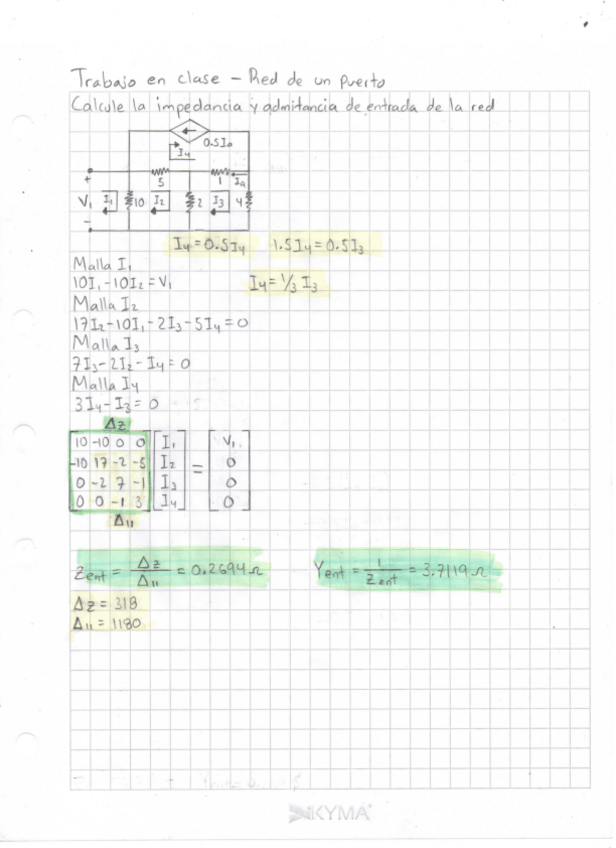 Trabajo en clase - Red de un puerto
Calcule la impedancia y admitancia de entrada de la red
0.5Ia
I4
5 1 Ia
+
V1 I1 10 I2 2 I3 4
-
I4 = 0.5I4 1.5I4 = 0.5I3
Malla I1
10I1 - 10I2 = V1 I4 = 1/3 I3
Malla I2
17I2 - 10I1 - 2I3 - 5I4 = 0
Malla I3
7I3 - 2I2 - I4 = 0
Malla I4
3I4 - I3 = 0
Δz
10 -10 0 0 I1 V1
-10 17 -2 -5 I2 = 0
0 -2 7 -1 I3 0
0 0 -1 3 I4 0
Δ11
Zent = Δz / Δ11 = 0.2694 Ω Yent = 1 / Zent = 3.7119 Ω
Δz = 318
Δ11 = 1180
KYMA